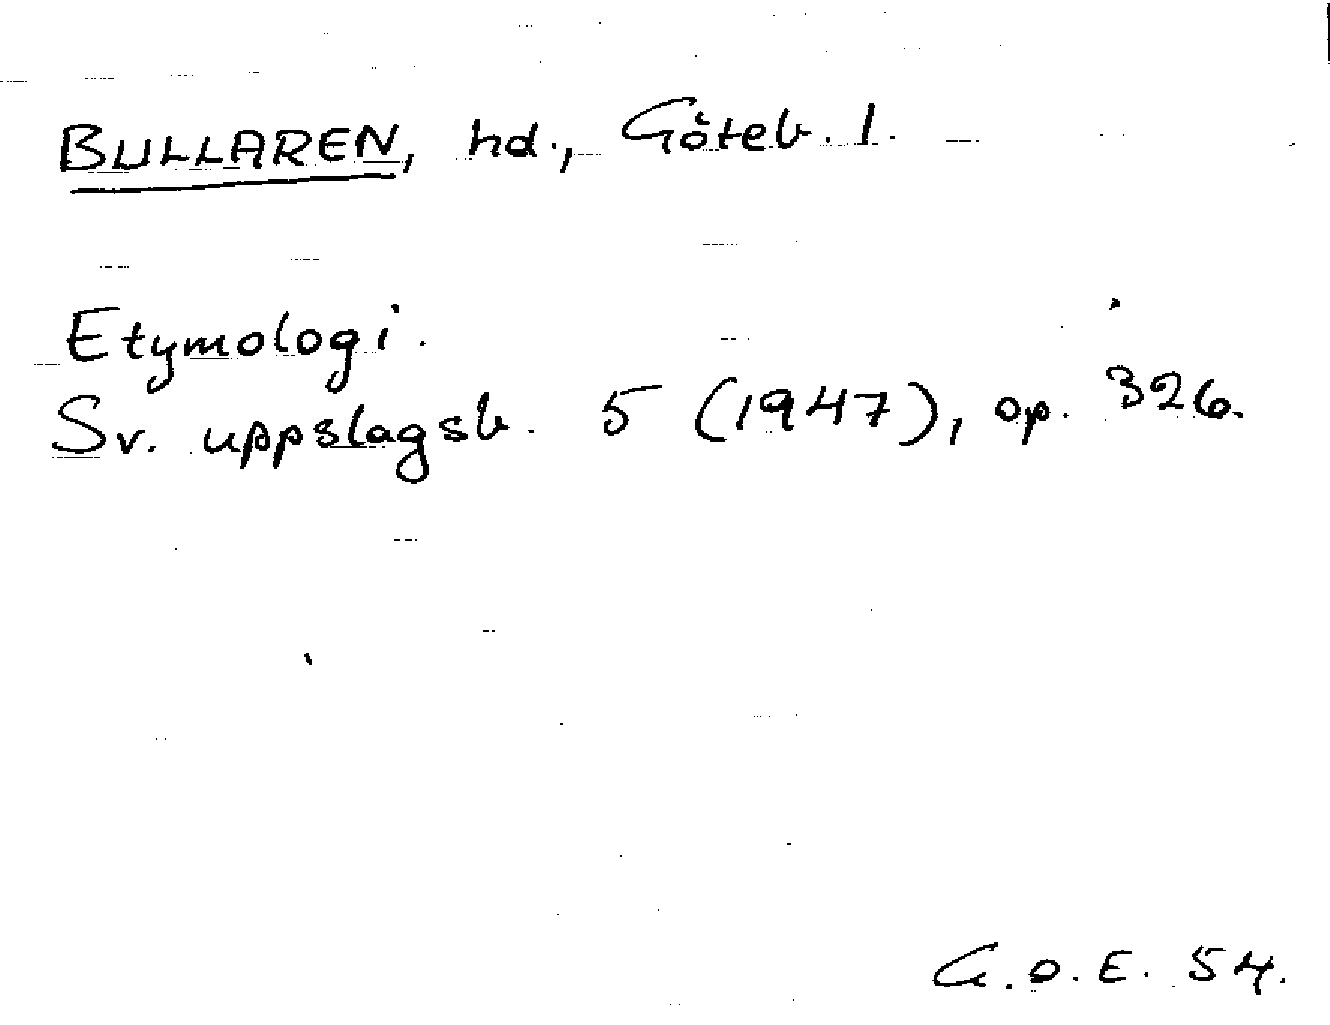 BULLAREN, hd., Göteb. l.
Etymologi.
Sv. uppslagsb. 5 (1947), sp. 326.
G.O.E. 54.